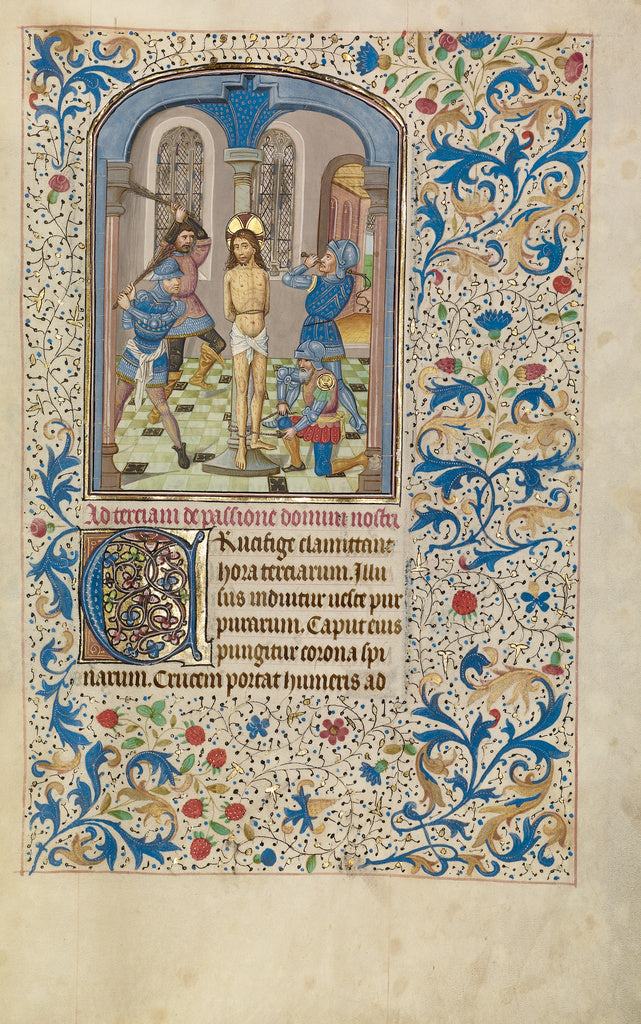 Ad terciam de passione domini nostri
CRucifige clamittant
hora terciarum. Illu
sus induitur ueste pur
purarum. Caput eius
pungitur corona spi
narum. Crucem portat humeris ad